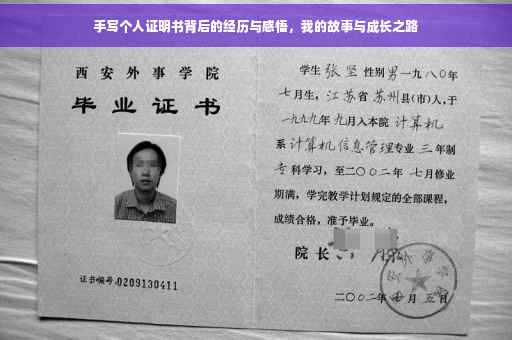 手写个人证明书背后的经历与感悟，我的故事与成长之路
西安外事学院
毕业证书
证书编号:0209130411
学生张坚性别男一九八〇年
七月生，江苏省苏州县(市)人,于
一九九九年九月入本院计算机
系计算机信息管理专业三年制
专科学习，至二〇〇二年七月修业
期满，学完教学计划规定的全部课程，
成绩合格，准予毕业。
院长
二〇〇二年 月五日